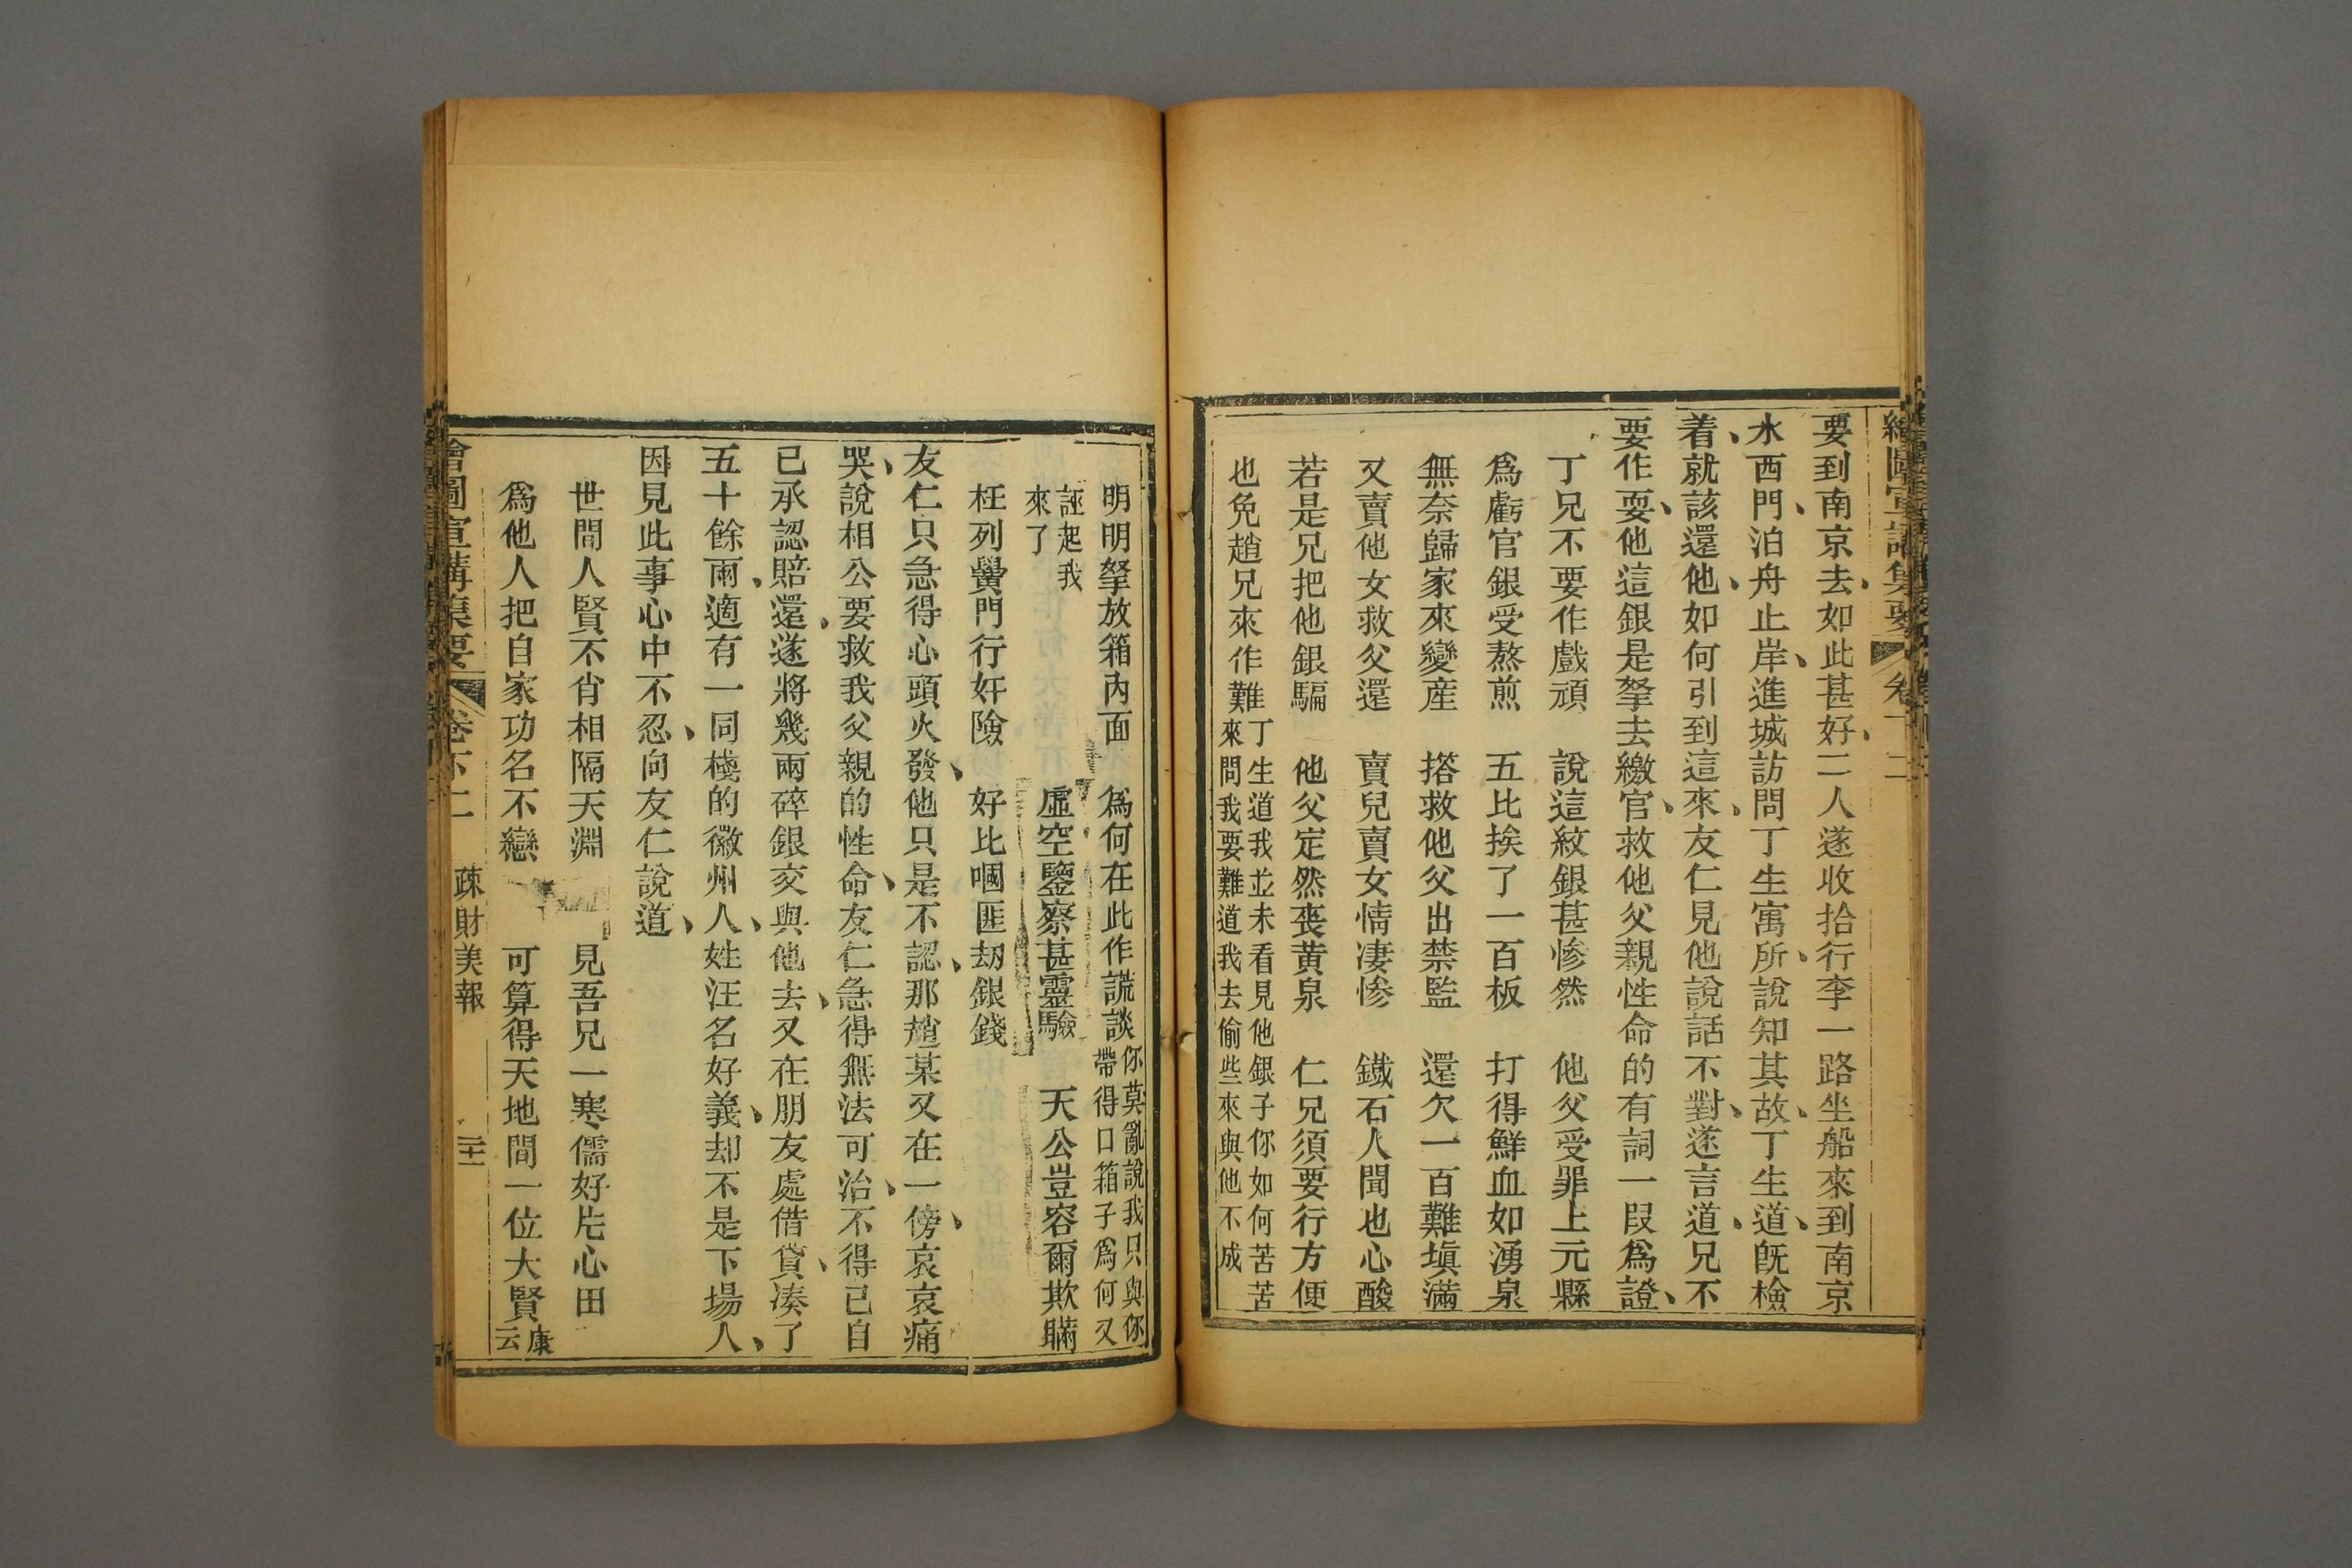 繪圖宣講集要 卷十二
要到南京去、如此甚好、二人遂收拾行李一路坐船來到南京
水西門、泊舟止岸、進城訪問丁生寓所、說知其故、丁生道、旣檢
着、就該還他、如何引到這來、友仁見他說話不對、遂言道、兄不
要作耍、他這銀是拏去繳官、救他父親性命的有詞一叚爲證、
丁兄不要作戲頑 說這紋銀甚慘然 他父受罪上元縣
爲虧官銀受熬煎 五比挨了一百板 打得鮮血如湧泉
無奈歸家來變産 撘救他父出禁監 還欠一百難塡滿
又賣他女救父還 賣兒賣女情凄慘 鐵石人聞也心酸
若是兄把他銀騙 他父定然喪黄泉 仁兄須要行方便
也免趙兄來作難 丁生道我並未看見他銀子你如何苦苦
來問我要難道我去偷些來與他不成
明明拏放箱內面 爲何在此作謊談 你莫亂說我只與你
帶得口箱子爲何又
誣起我
來了 虛空鑒察甚靈驗 天公豈容爾欺瞞
枉列黌門行奸險 好比嘓匪刼銀錢
友仁只急得心頭火發、他只是不認、那趙某又在一傍、哀哀痛
哭、說相公要救我父親的性命、友仁急得無法可治、不得已自
已承認賠還、遂將幾兩碎銀交與他去、又在朋友處借貸、凑了
五十餘兩、適有一同棧的徽州人、姓汪名好義、却不是下場人、
因見此事心中不忍、向友仁說道、
世間人賢不肖相隔天淵 見吾兄一寒儒好片心田
爲他人把自家功名不戀 可算得天地間一位大賢 康
云
繪圖宣講集要 卷十二 疎財美報 二十一